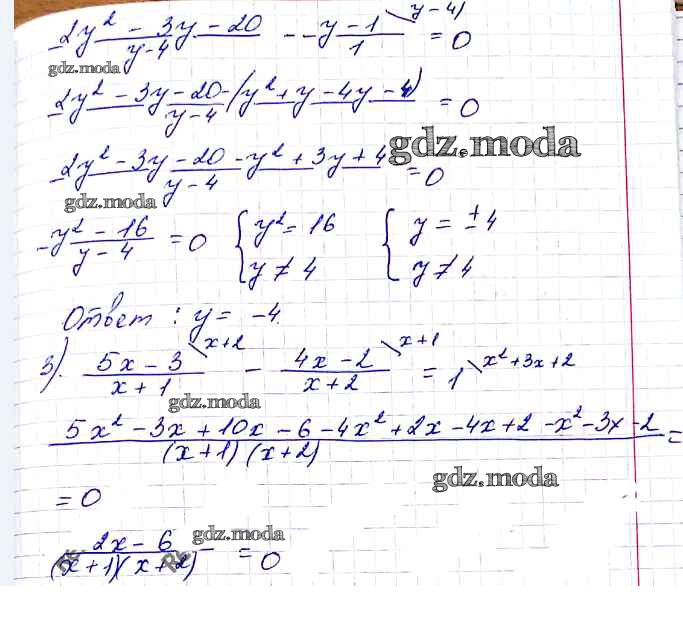 (2y² - 3y - 20)/(y - 4) - (y - 1)/1 \ y - 4) = 0
gdz.moda
(2y² - 3y - 20 - (y² + y - 4y - 4))/(y - 4) = 0
gdz.moda
(2y² - 3y - 20 - y² + 3y + 4)/(y - 4) = 0
gdz.moda
(y² - 16)/(y - 4) = 0 { y² = 16 { y = ± 4
y ≠ 4 y ≠ 4
Ответ : y = -4.
3). (5x - 3)/(x + 1) \ x+2 - (4x - 2)/(x + 2) \ x+1 = 1 \ x² + 3x + 2
gdz.moda
(5x² - 3x + 10x - 6 - 4x² + 2x - 4x + 2 - x² - 3x - 2)/((x + 1) (x + 2)) =
gdz.moda
= 0
gdz.moda
(2x - 6)/((x + 1)(x + 2)) = 0